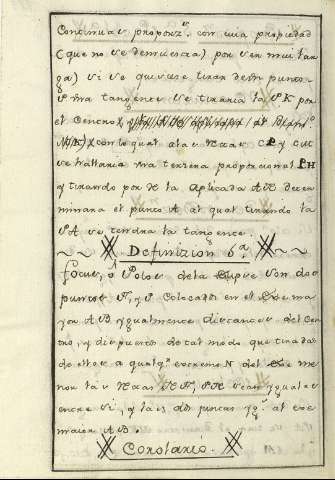 Continuas proporz.ˢ con una propiedad
(que no se demuestra) por ser mui lar
ga) si se quisiese tirar del punto
S una tangente se tiraria la SK por
el Centro
con lo qual a las rectas CP y CK
se hallaria una tercera proporcional PH
y tirando por H la Aplicada AH deter
minara el punto A al qual tirando la
SA se tendra la tangente.
Definizion 6.ª
focus, ò Polos de la Elipse son dos
puntos F, y S colocados en el Exe ma
yor AB ygualmente distantes del Cen
tro, y dispuestos de tal modo que tirados
de ellos a qualq.ª extremo N del Exe me
nor las rectas NF, SN sean yguales
entre si, y las dos juntas yg.ˢ al exe
maior AB.
Corolario.